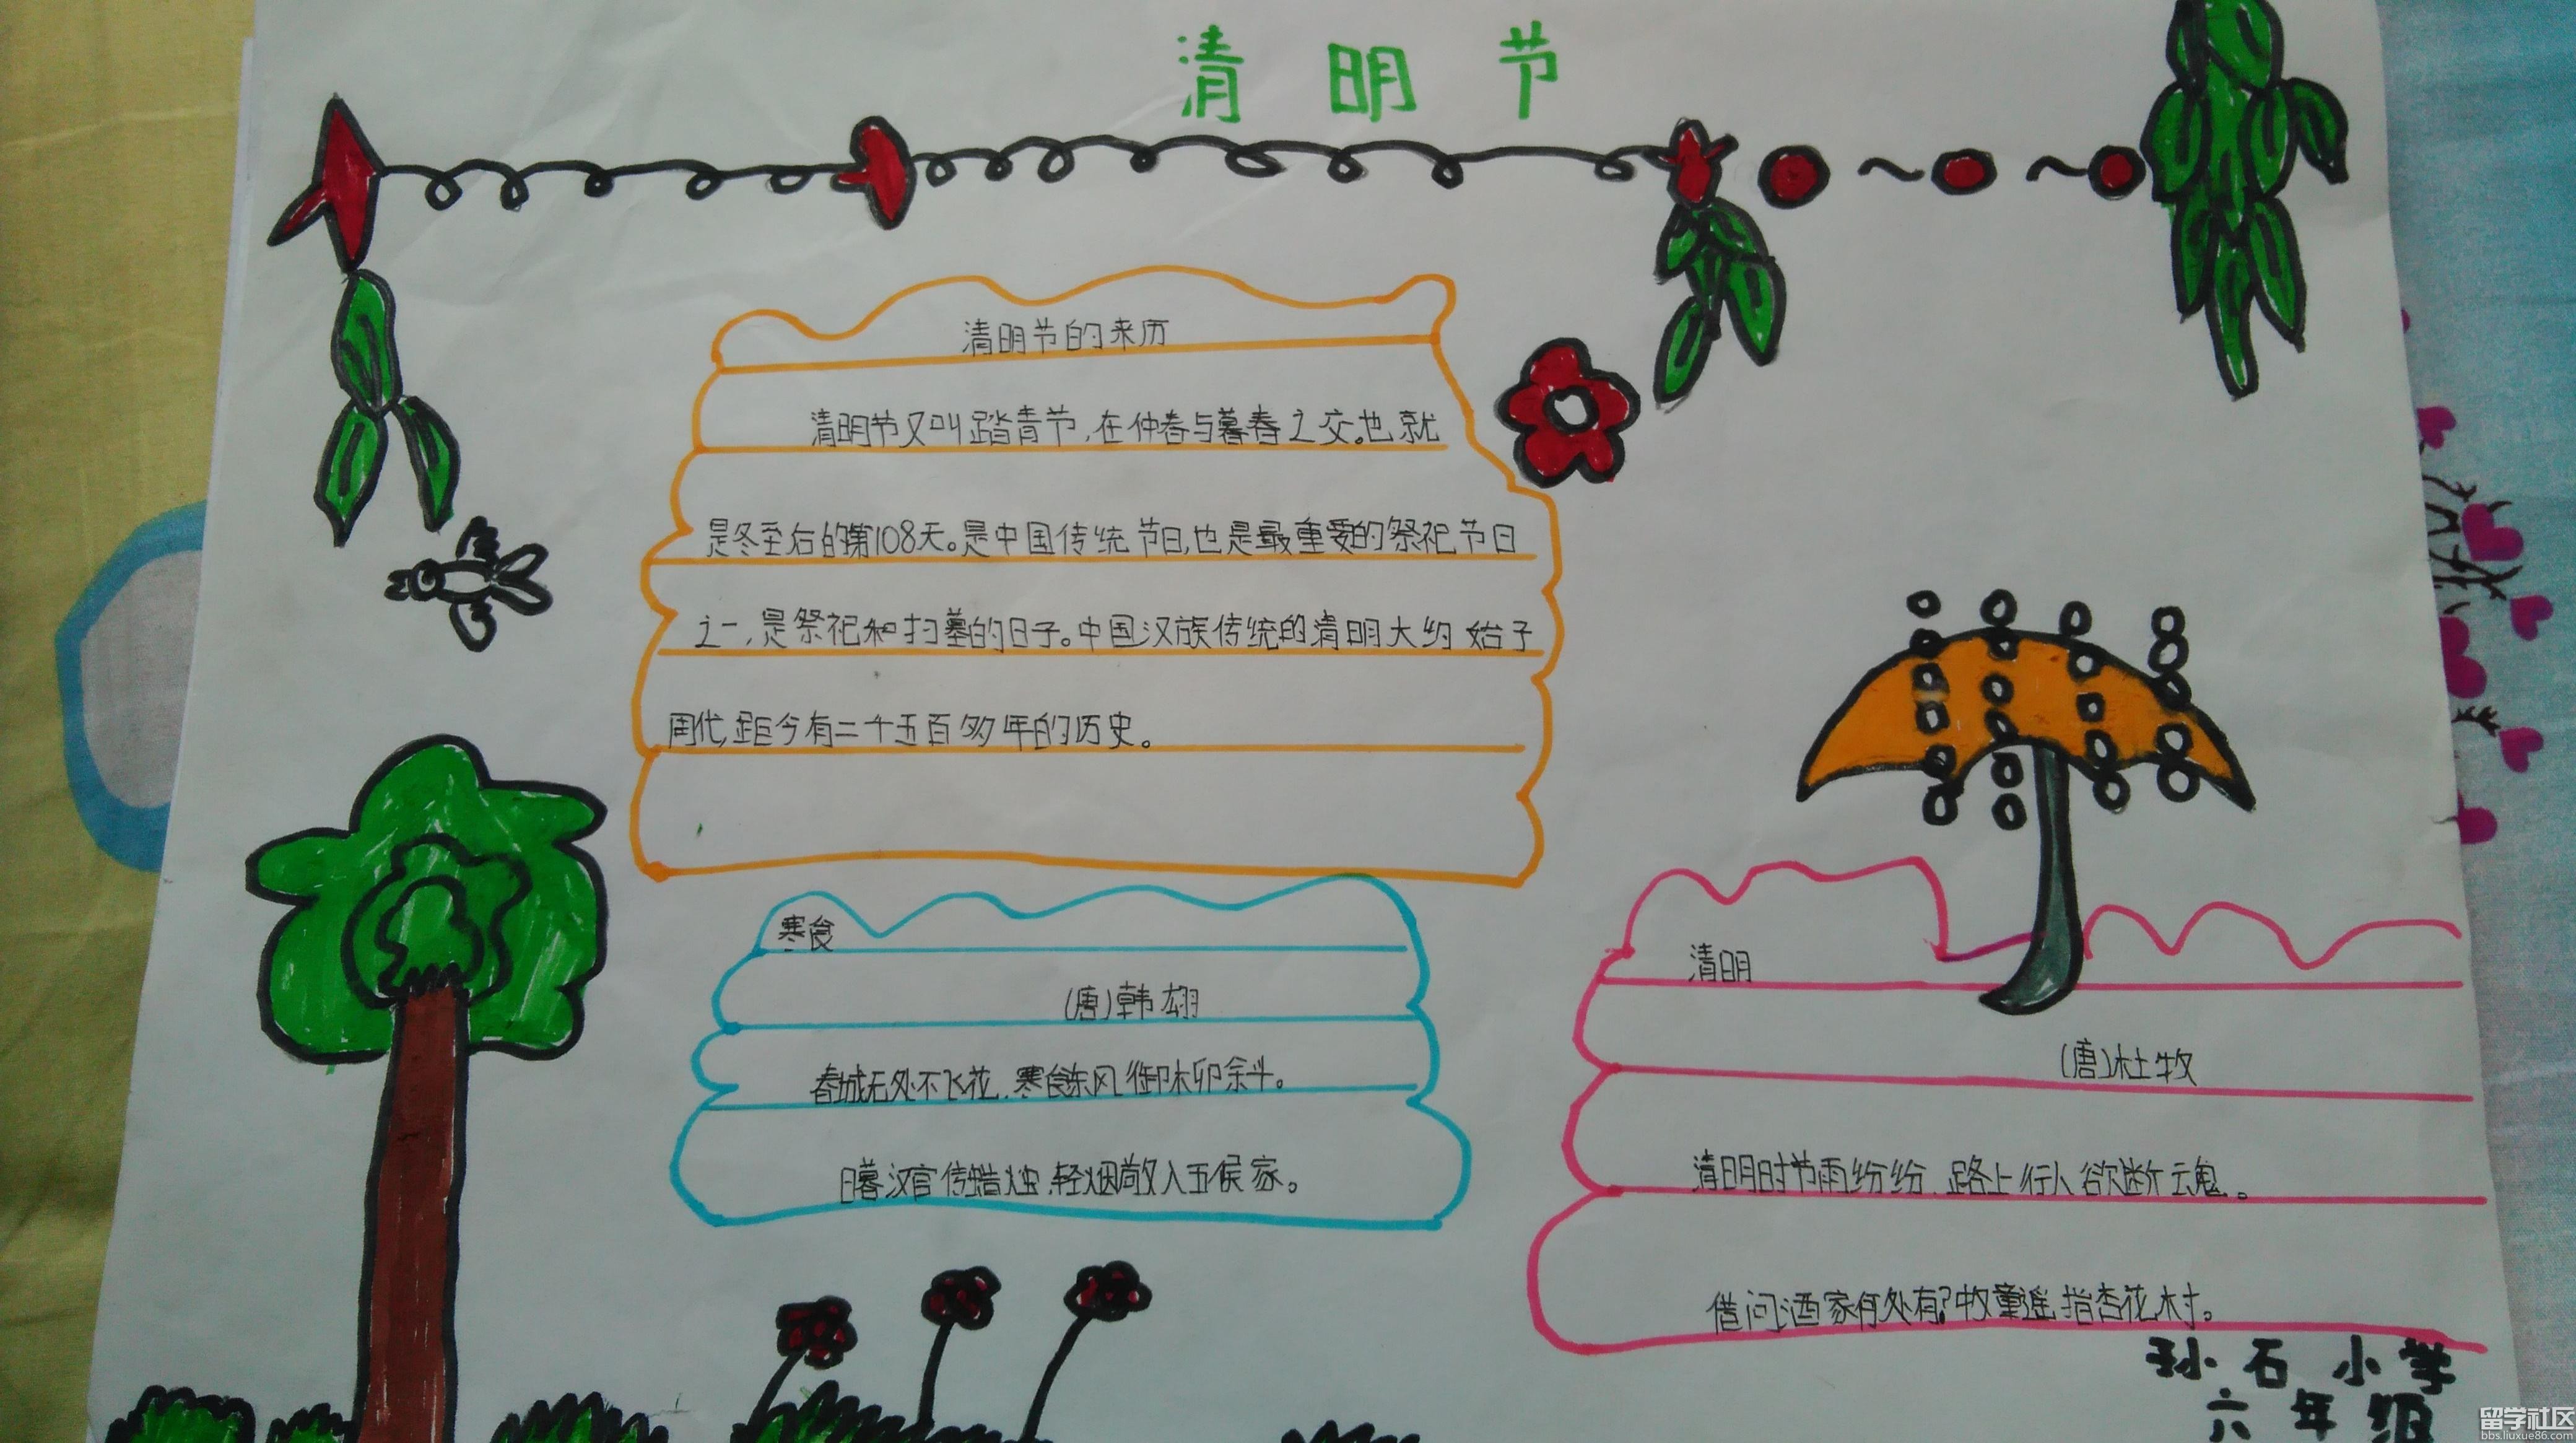 清明节
清明节的来历
清明节又叫踏青节,在仲春与暮春之交。也就
是冬至后的第108天。是中国传统节日,也是最重要的祭祀节日
之一,是祭祀和扫墓的日子。中国汉族传统的清明大约始于
周代,距今有二千五百多年的历史。
寒食
(唐)韩翃
春城无处不飞花,寒食东风御柳斜。
日暮汉宫传蜡烛,轻烟散入五侯家。
清明
(唐)杜牧
清明时节雨纷纷,路上行人欲断魂。
借问酒家何处有?牧童遥指杏花村。
孙石小学
六年级
留学社区
bbs.liuxue86.com